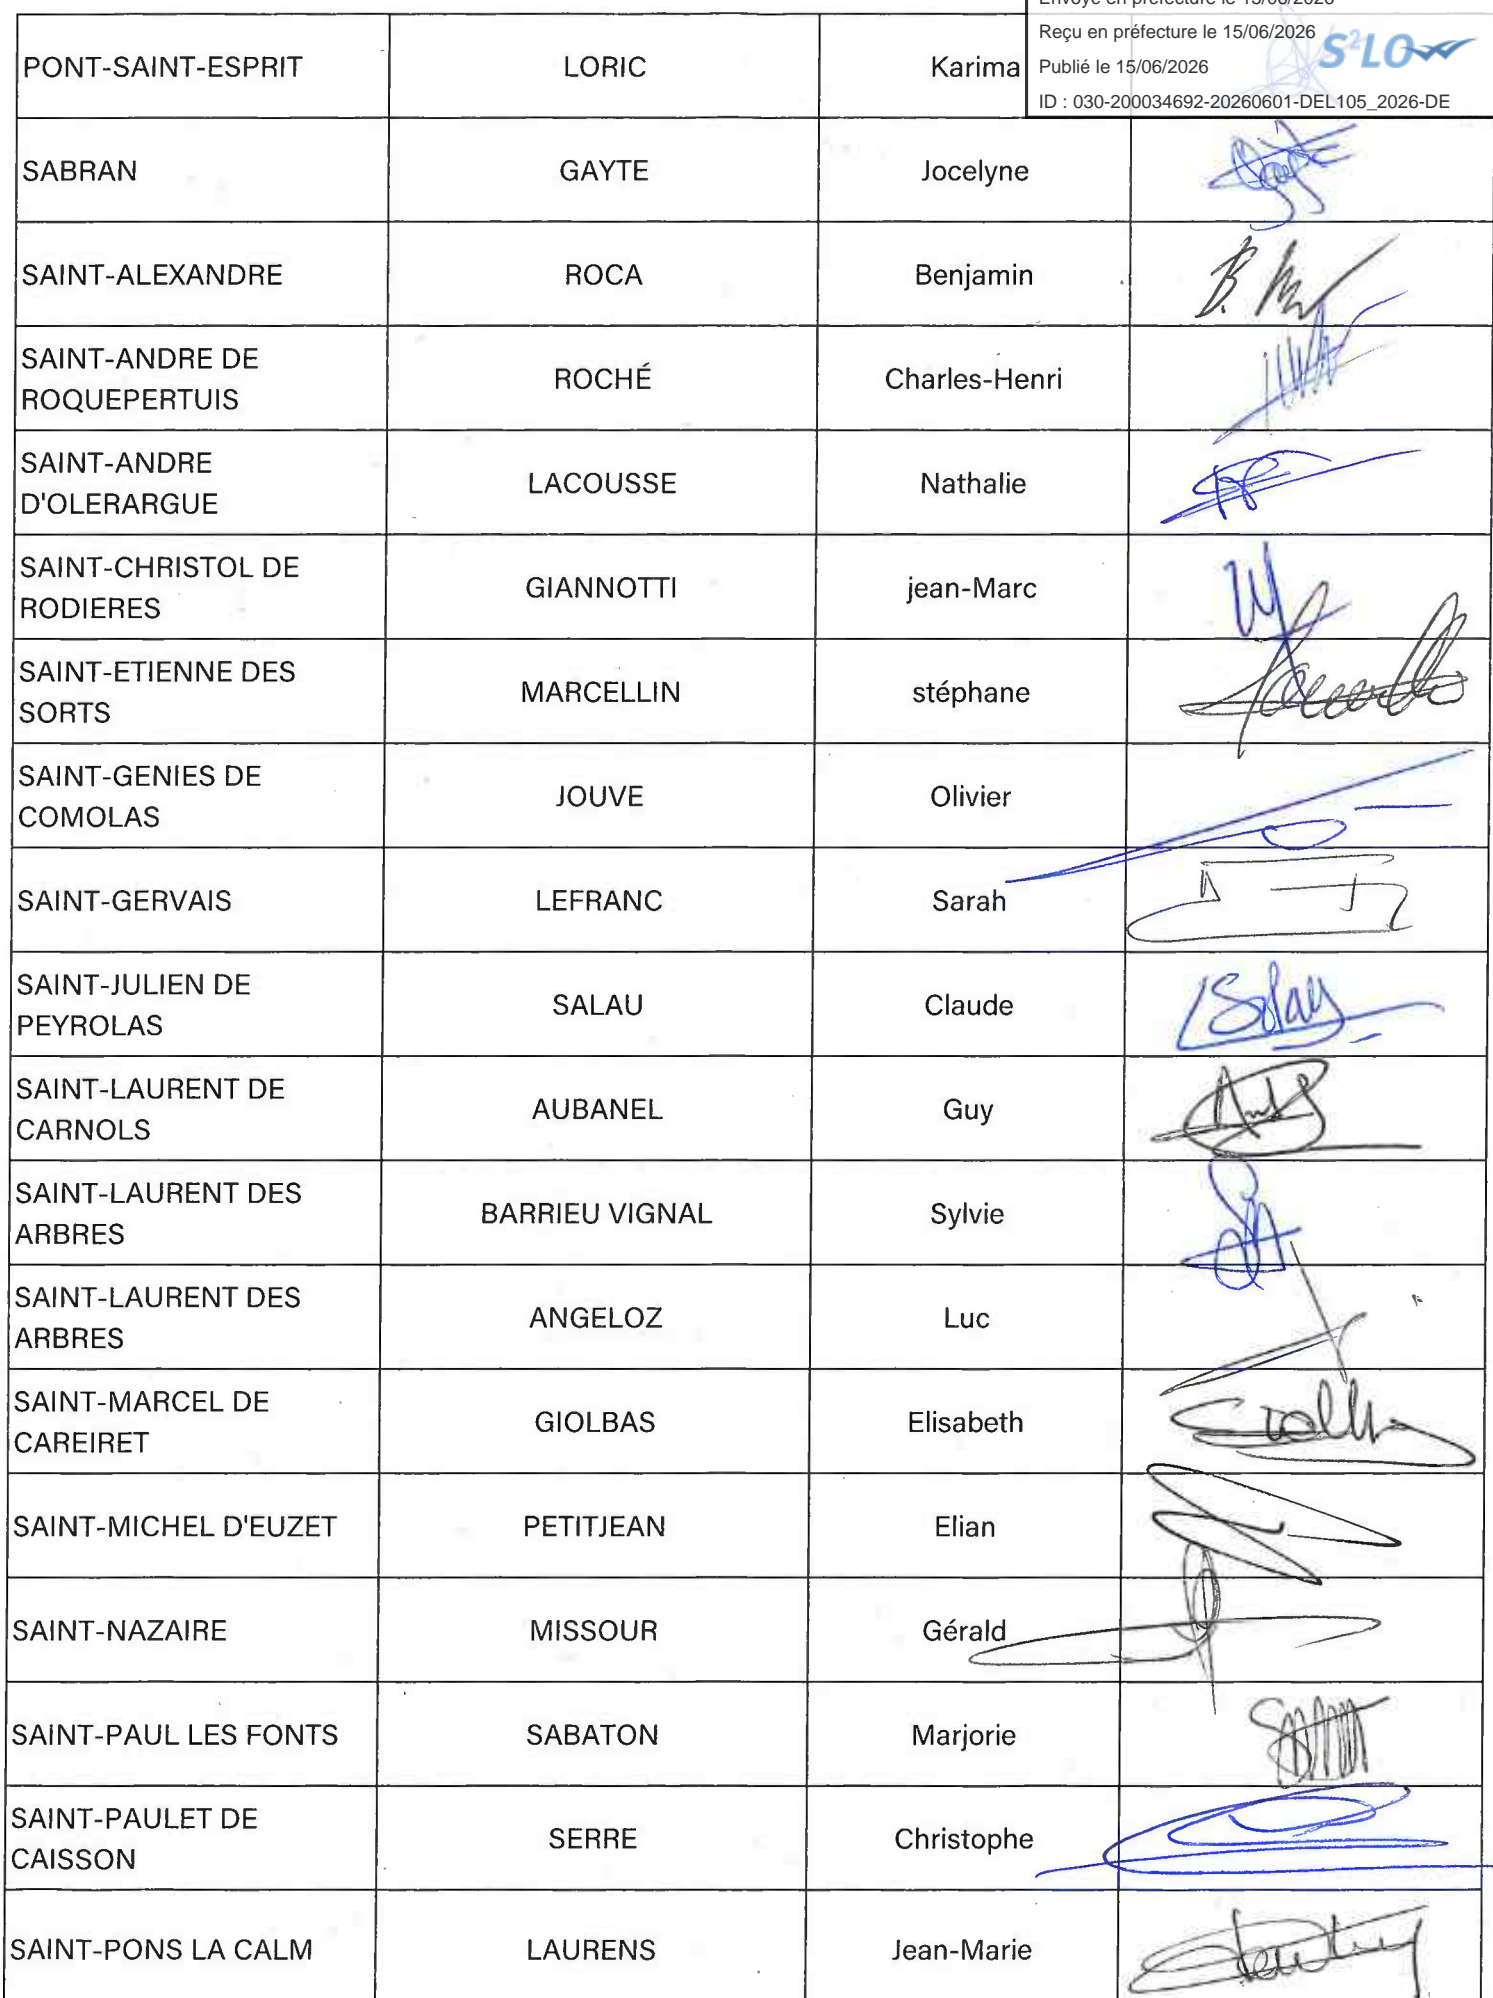 Envoyé en préfecture le 15/06/2026
Reçu en préfecture le 15/06/2026
S²LOW
Publié le 15/06/2026
ID : 030-200034692-20260601-DEL105_2026-DE
PONT-SAINT-ESPRIT LORIC Karima
SABRAN GAYTE Jocelyne
SAINT-ALEXANDRE ROCA Benjamin
SAINT-ANDRE DE
ROQUEPERTUIS ROCHÉ Charles-Henri
SAINT-ANDRE
D'OLERARGUE LACOUSSE Nathalie
SAINT-CHRISTOL DE
RODIERES GIANNOTTI jean-Marc
SAINT-ETIENNE DES
SORTS MARCELLIN stéphane
SAINT-GENIES DE
COMOLAS JOUVE Olivier
SAINT-GERVAIS LEFRANC Sarah
SAINT-JULIEN DE
PEYROLAS SALAU Claude
SAINT-LAURENT DE
CARNOLS AUBANEL Guy
SAINT-LAURENT DES
ARBRES BARRIEU VIGNAL Sylvie
SAINT-LAURENT DES
ARBRES ANGELOZ Luc
SAINT-MARCEL DE
CAREIRET GIOLBAS Elisabeth
SAINT-MICHEL D'EUZET PETITJEAN Elian
SAINT-NAZAIRE MISSOUR Gérald
SAINT-PAUL LES FONTS SABATON Marjorie
SAINT-PAULET DE
CAISSON SERRE Christophe
SAINT-PONS LA CALM LAURENS Jean-Marie